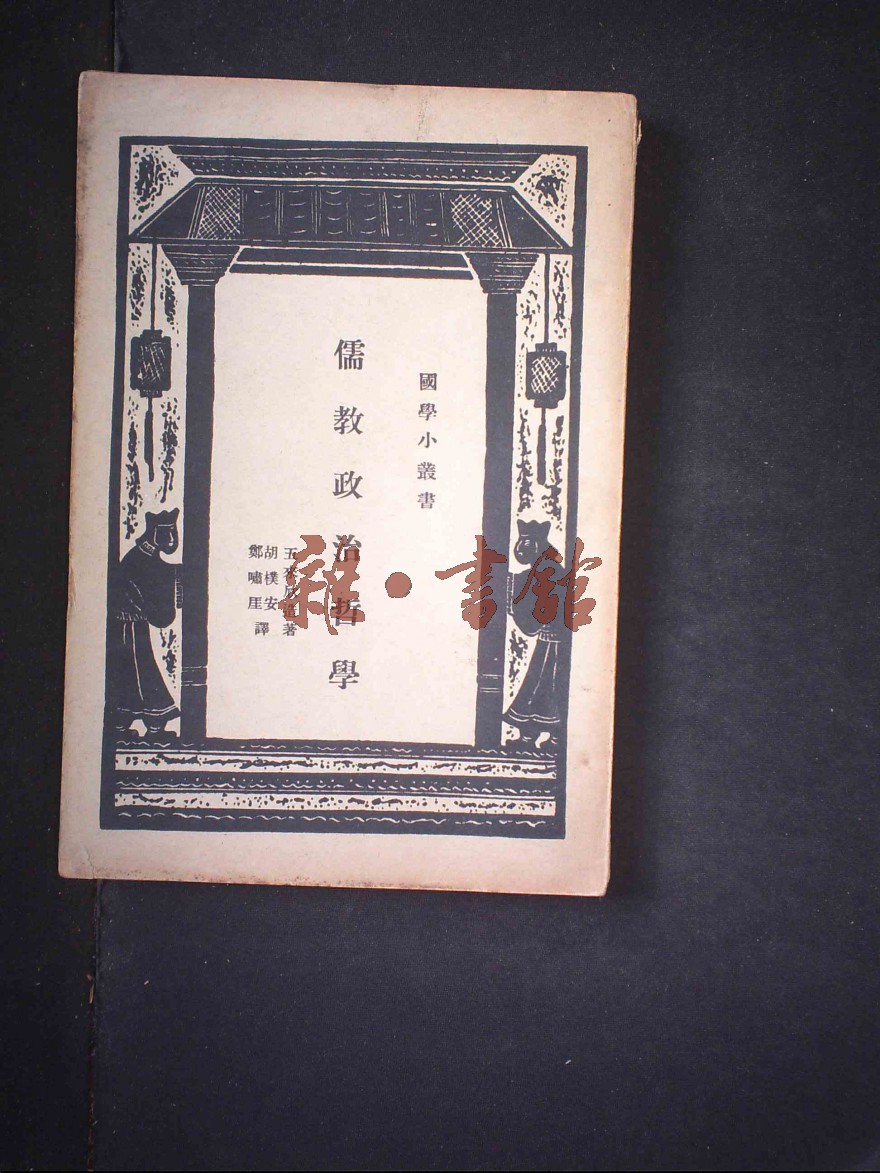 國學小叢書
儒教政治哲學
五來欣造著
胡樸安
鄭嘯厓譯
雜·書館